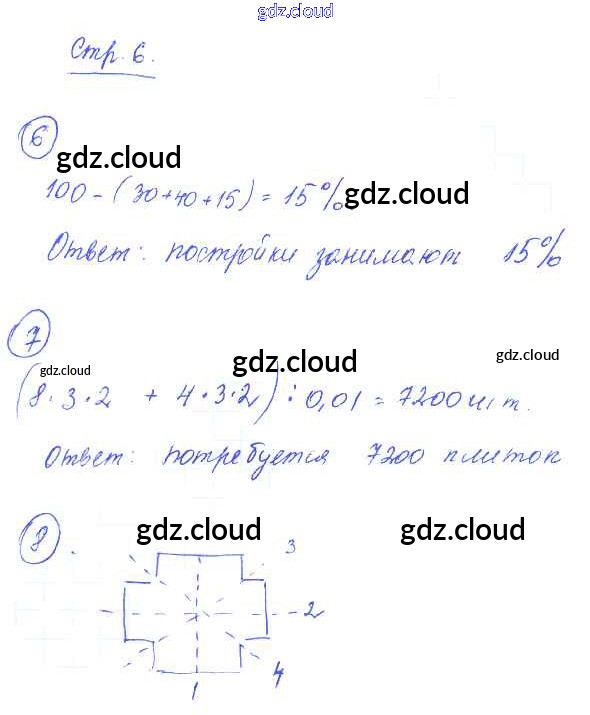 gdz.cloud
Стр. 6.
6
gdz.cloud
100 - (30+40+15) = 15% gdz.cloud
Ответ: постройки занимают 15%
7
gdz.cloud gdz.cloud gdz.cloud
(8·3·2 + 4·3·2) : 0,01 = 7200 шт.
Ответ: потребуется 7200 плиток
8. gdz.cloud gdz.cloud
3
2
4
1